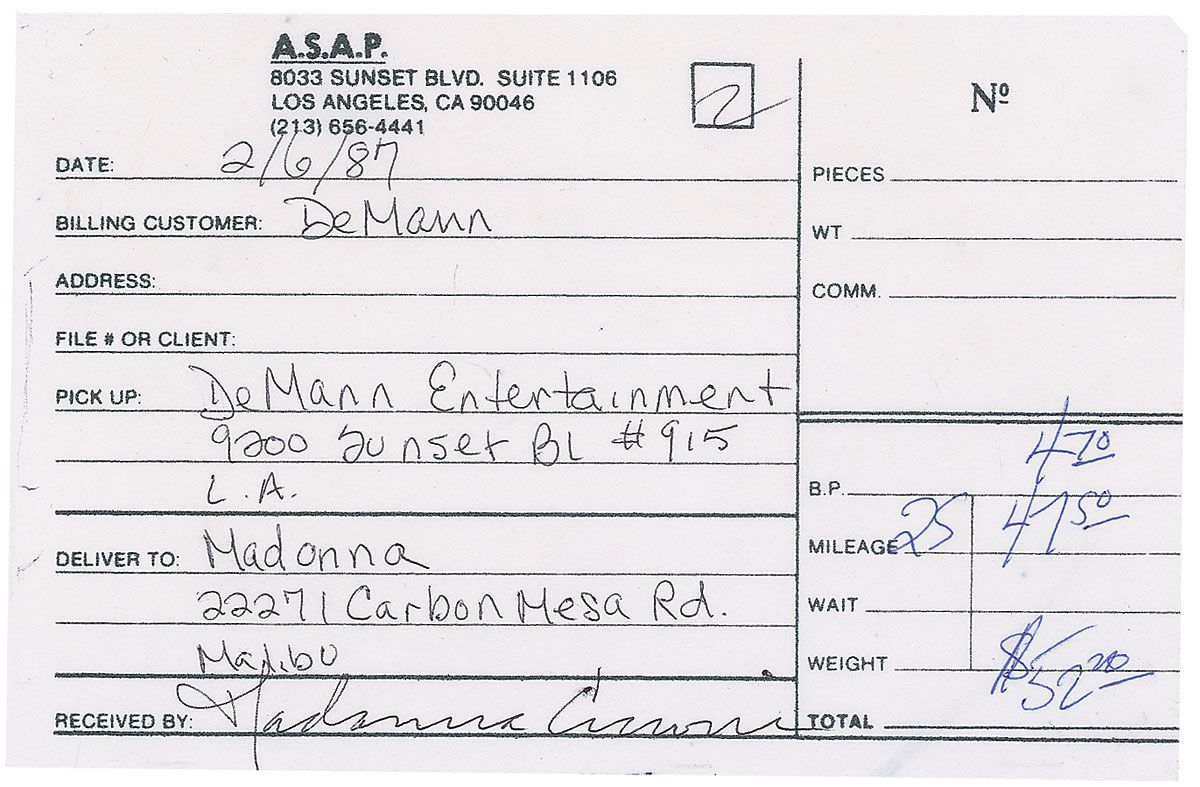 A.S.A.P.
8033 SUNSET BLVD. SUITE 1106
LOS ANGELES, CA 90046
(213) 656-4441
2
Nº
DATE: 2/6/87
PIECES
BILLING CUSTOMER: DeMann
WT
ADDRESS:
COMM.
FILE # OR CLIENT:
PICK UP: DeMann Entertainment
9200 Sunset Bl #915
L.A.
B.P. 4 70
MILEAGE 25 47 50
DELIVER TO: Madonna
22271 Carbon Mesa Rd.
Malibu
WAIT
WEIGHT
$52 20
RECEIVED BY: Madonna Ciccone
TOTAL